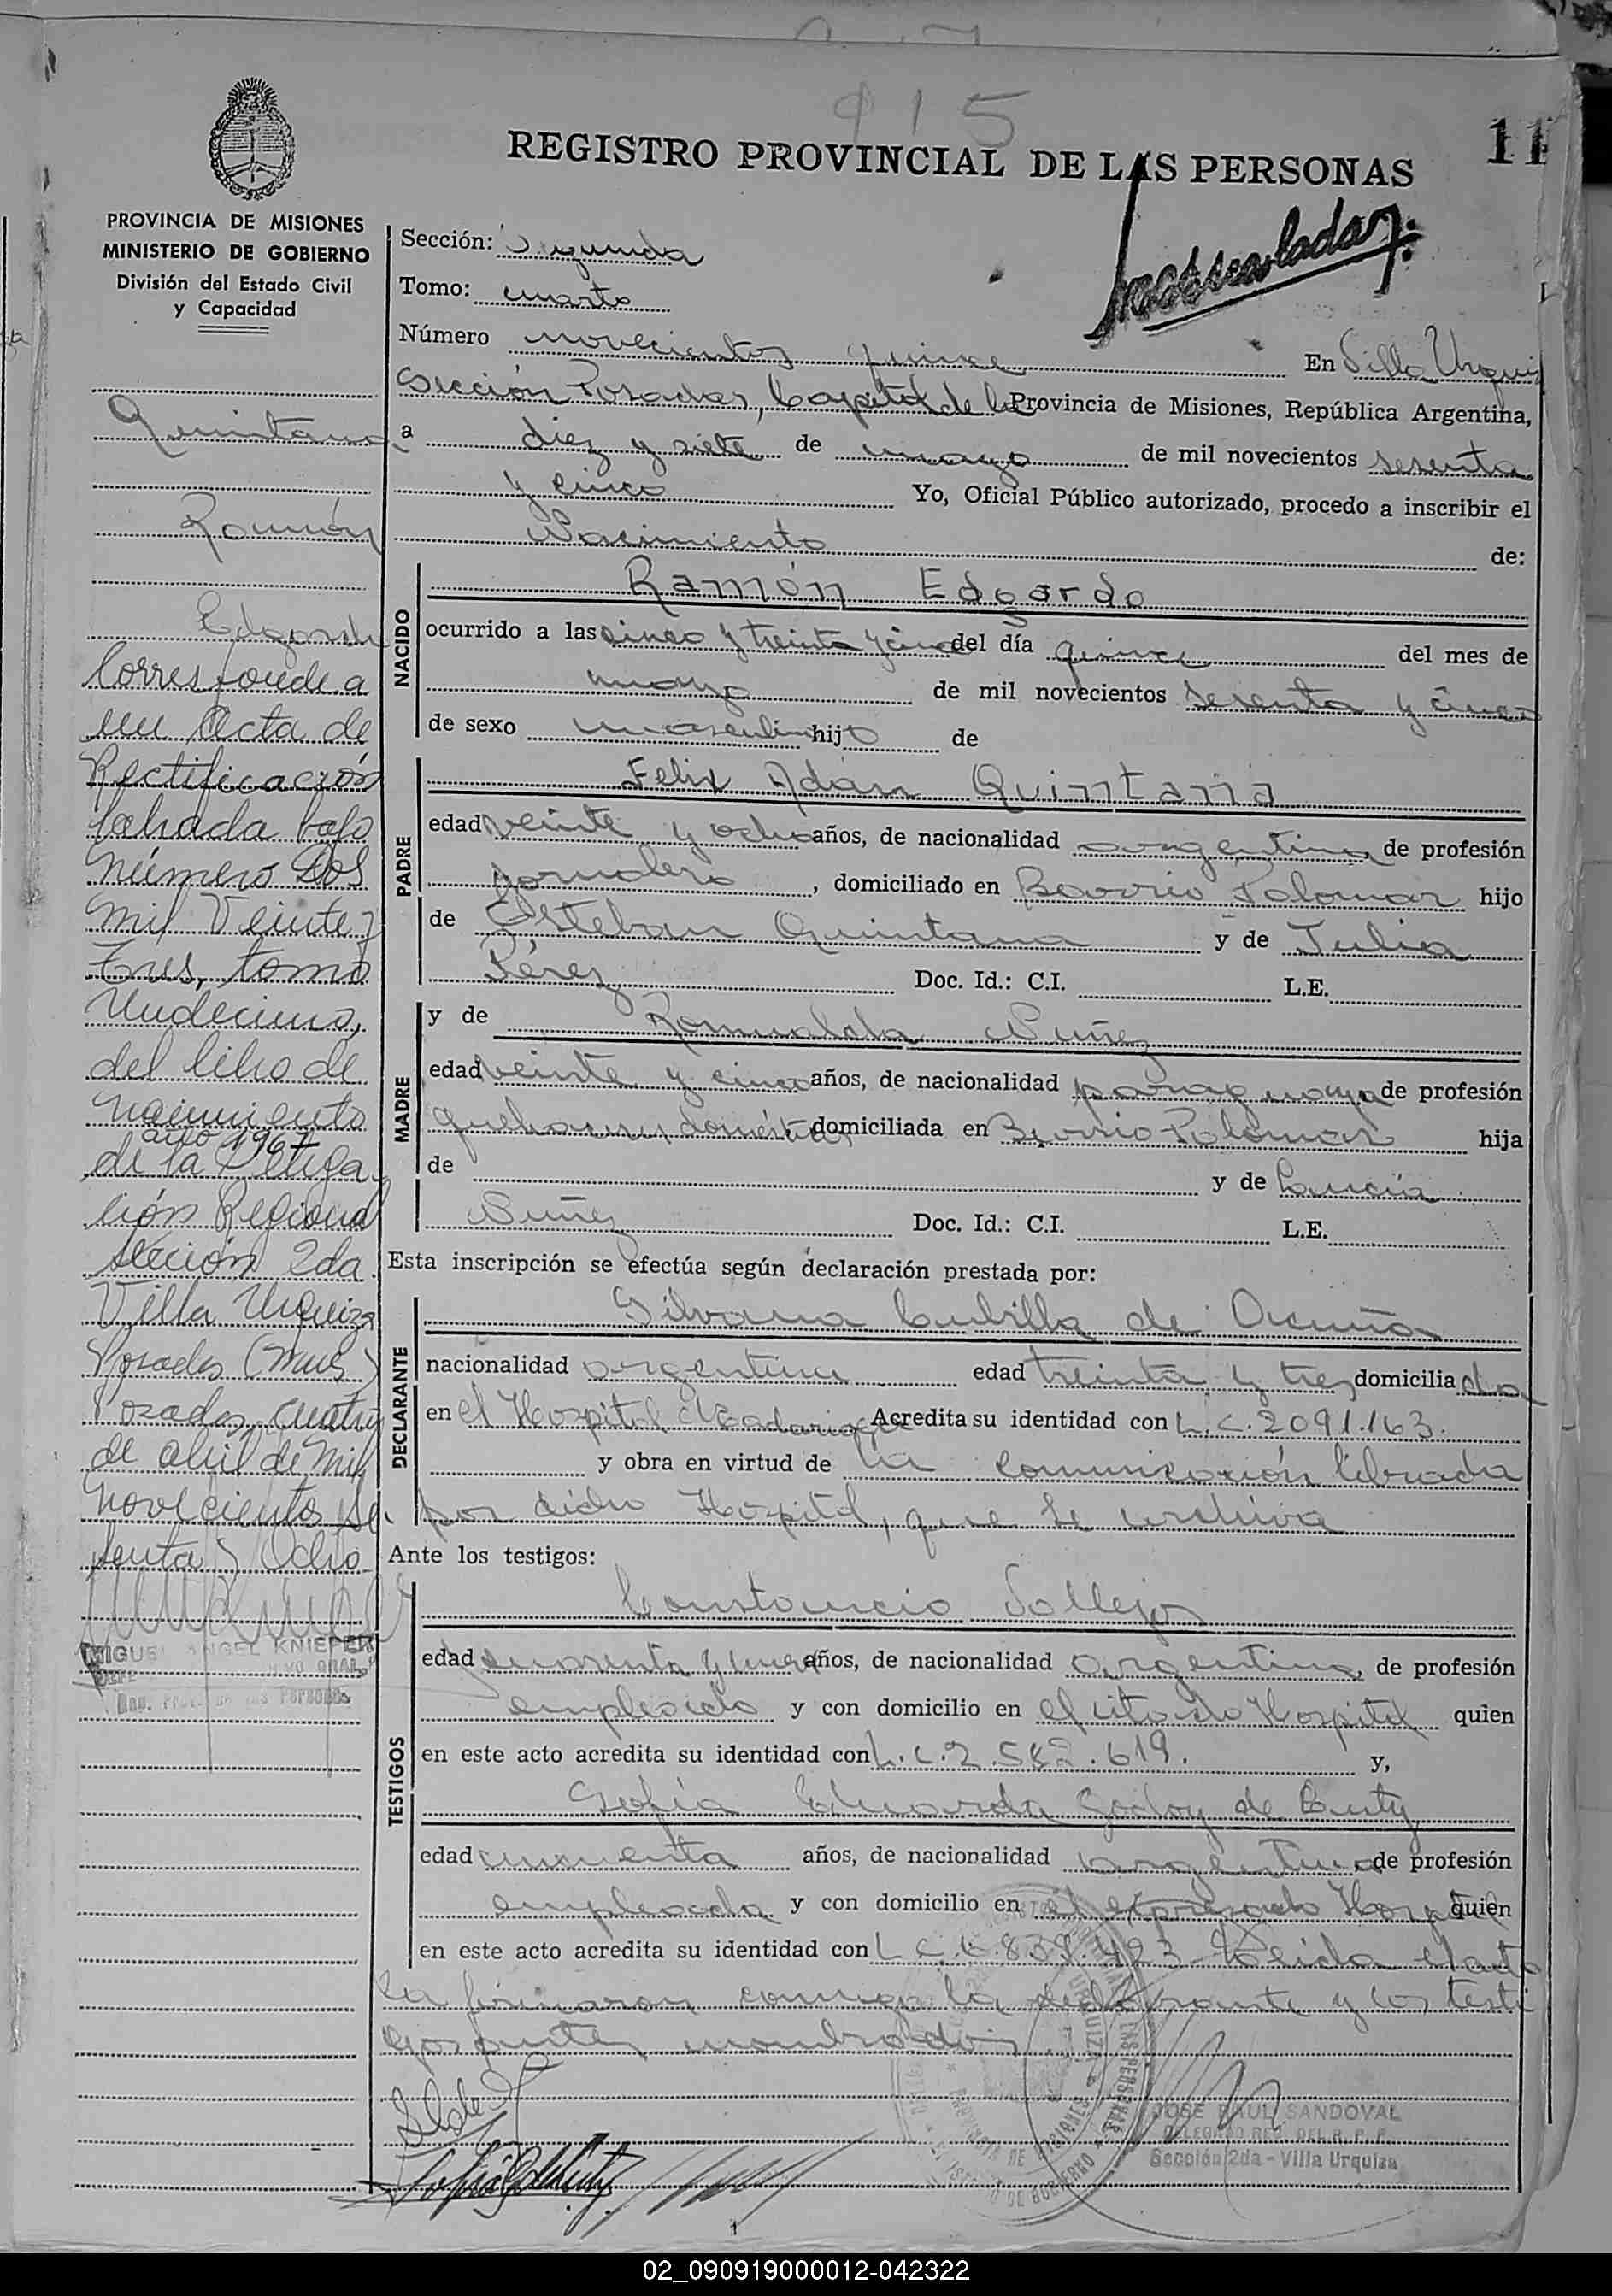 915
11
REGISTRO PROVINCIAL DE LAS PERSONAS
PROVINCIA DE MISIONES
MINISTERIO DE GOBIERNO
División del Estado Civil
y Capacidad
Sección: Segunda
Tomo: cuarto
Número novecientos quince En Villa Urquiz
Sección Posadas, Capital de la Provincia de Misiones, República Argentina,
a diez y siete de mayo de mil novecientos sesenta
y cinco Yo, Oficial Público autorizado, procedo a inscribir el
Nacimiento de:
NACIDO
Ramón Edgardo
ocurrido a las cinco y treinta y cinco del día quince del mes de
mayo de mil novecientos sesenta y cinco
de sexo masculino hijo de
PADRE
Felix Adán Quintana
edad veinte y ocho años, de nacionalidad argentina, de profesión
jornalero, domiciliado en Barrio Palomar hijo
de Esteban Quintana y de Julia
Pérez Doc. Id.: C.I. L.E.
MADRE
y de Romualda Nuñez
edad veinte y cinco años, de nacionalidad paraguaya de profesión
quehaceres domésticos domiciliada en Barrio Palomar hija
de y de Lucía
Nuñez Doc. Id.: C.I. L.E.
Esta inscripción se efectúa según declaración prestada por:
DECLARANTE
Silvana Cubilla de Acuña
nacionalidad argentina edad treinta y tres domiciliada
en el Hospital Acredita su identidad con L.C.2091.163.
y obra en virtud de la comunicación librada
por dicho Hospital, que se archiva
Ante los testigos:
TESTIGOS
Constancio Vallejos
edad cuarenta y nueve años, de nacionalidad argentina, de profesión
empleado y con domicilio en el citado Hospital quien
en este acto acredita su identidad con L.C.2.582.619. y,
Sofía Eduarda Godoy de
edad cincuenta años, de nacionalidad argentina de profesión
empleada y con domicilio en el expresado Hospital quien
en este acto acredita su identidad con L C 6.839.423 Leida el acta
la firmaron conmigo la declarante y los testi
gos antes nombrados
JOSE RAUL SANDOVAL
DELEGADO REG. DEL R. P. P.
Sección 2da - Villa Urquiza
Quintana
Ramón
Edgardo
Corresponde a
un Acta de
Rectificación
labrada bajo
número Dos
mil Veinte y
Tres, tomo
Undécimo,
del libro de
nacimiento
año 1967
de la Delega
ción Regional
sección 2da
Villa Urquiza
Posadas (Mnes)
Posadas, cuatro
de abril de Mil
novecientos se
senta y Ocho
MIGUEL ANGEL KNIEPER
JEFE GRAL.
02_090919000012-042322